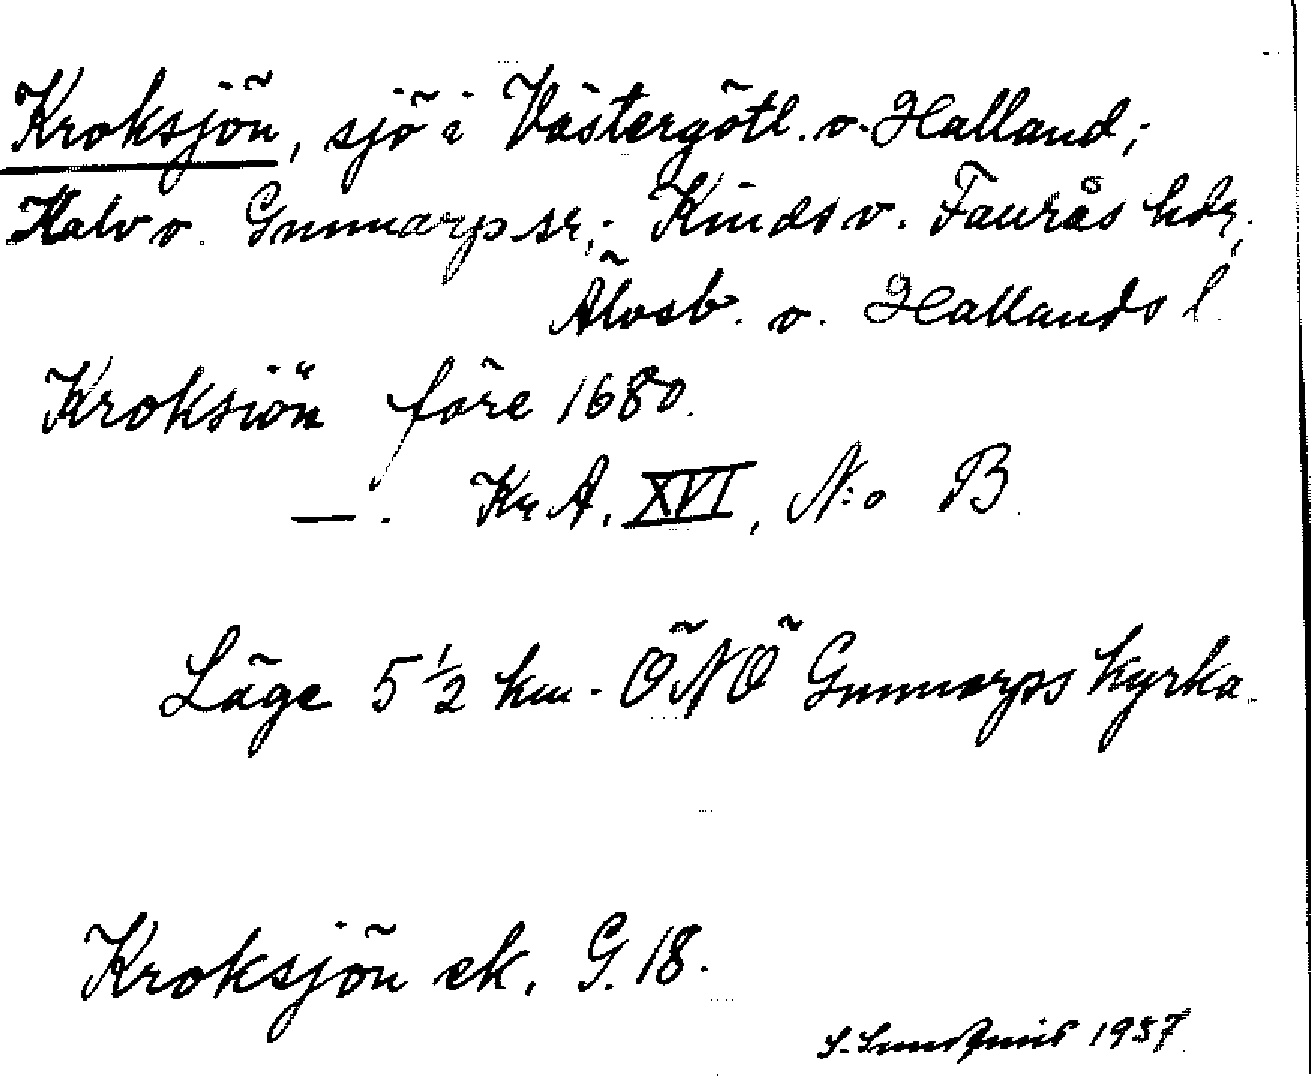 Kroksjön, sjö i Västergötl. o. Halland;
Kalv o. Gunnarp sr; Kinds o. Faurås hdr,
Älvsb. o. Hallands l.
Kroksiön före 1680.
—. Kr A. XVI, N:o B.
Läge 5 1/2 km. ÖNÖ Gunnarps kyrka.
Kroksjön ek. G. 18.
S. Sundquist 1937.